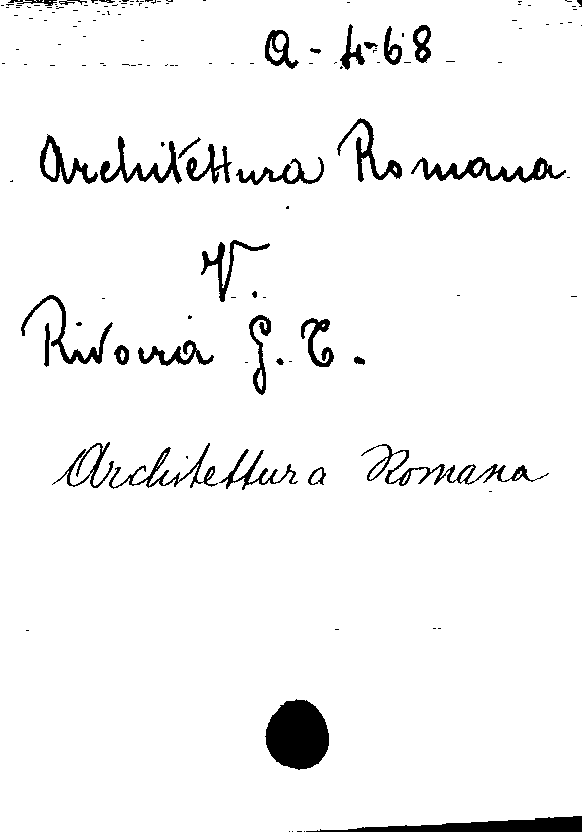 A-4-68
Architettura Romana
V.
Rivoira G. T.
Architettura Romana